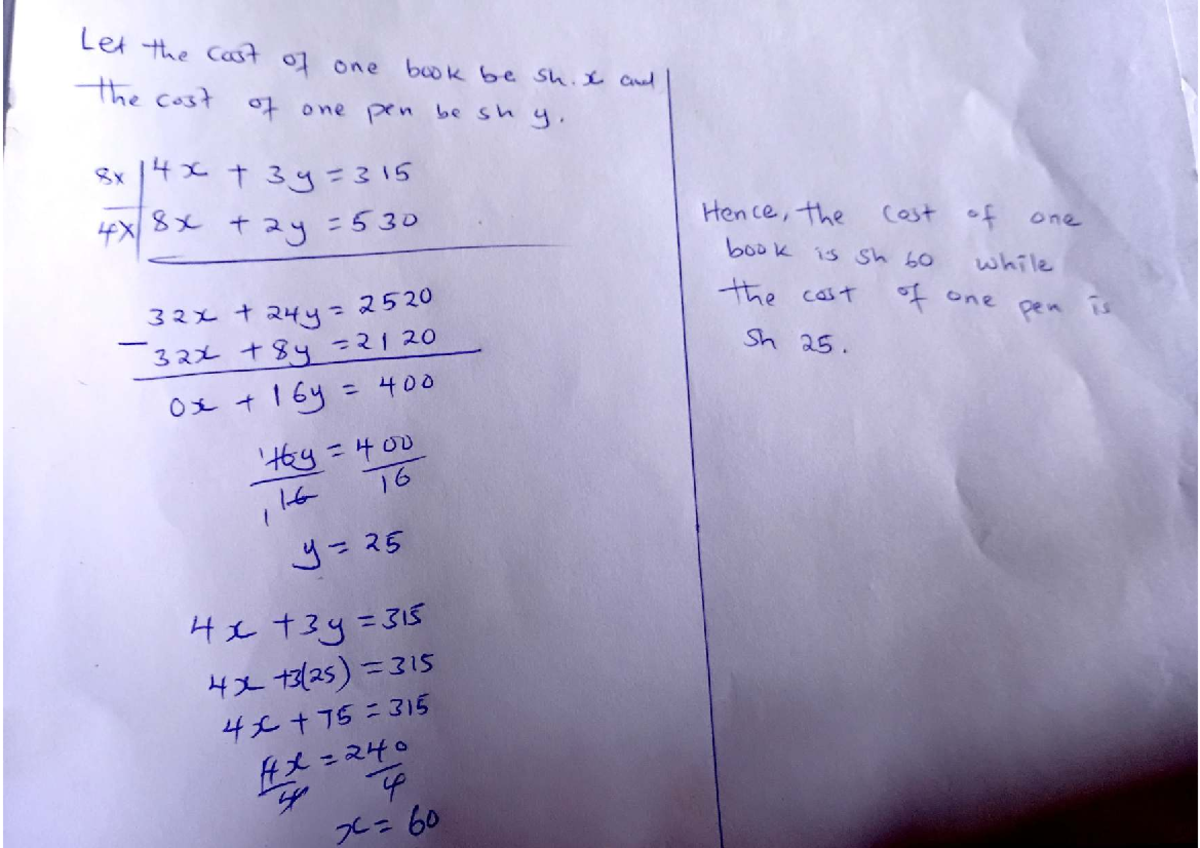 Let the cost of one book be sh. x and
the cost of one pen be sh y.
8x | 4x + 3y = 315
4x | 8x + 2y = 530
32x + 24y = 2520
- 32x + 8y = 2120
0x + 16y = 400
16y = 400
16 16
y = 25
4x + 3y = 315
4x + 3(25) = 315
4x + 75 = 315
4x = 240
4 4
x = 60
Hence, the cost of one
book is sh 60 while
the cost of one pen is
sh 25.